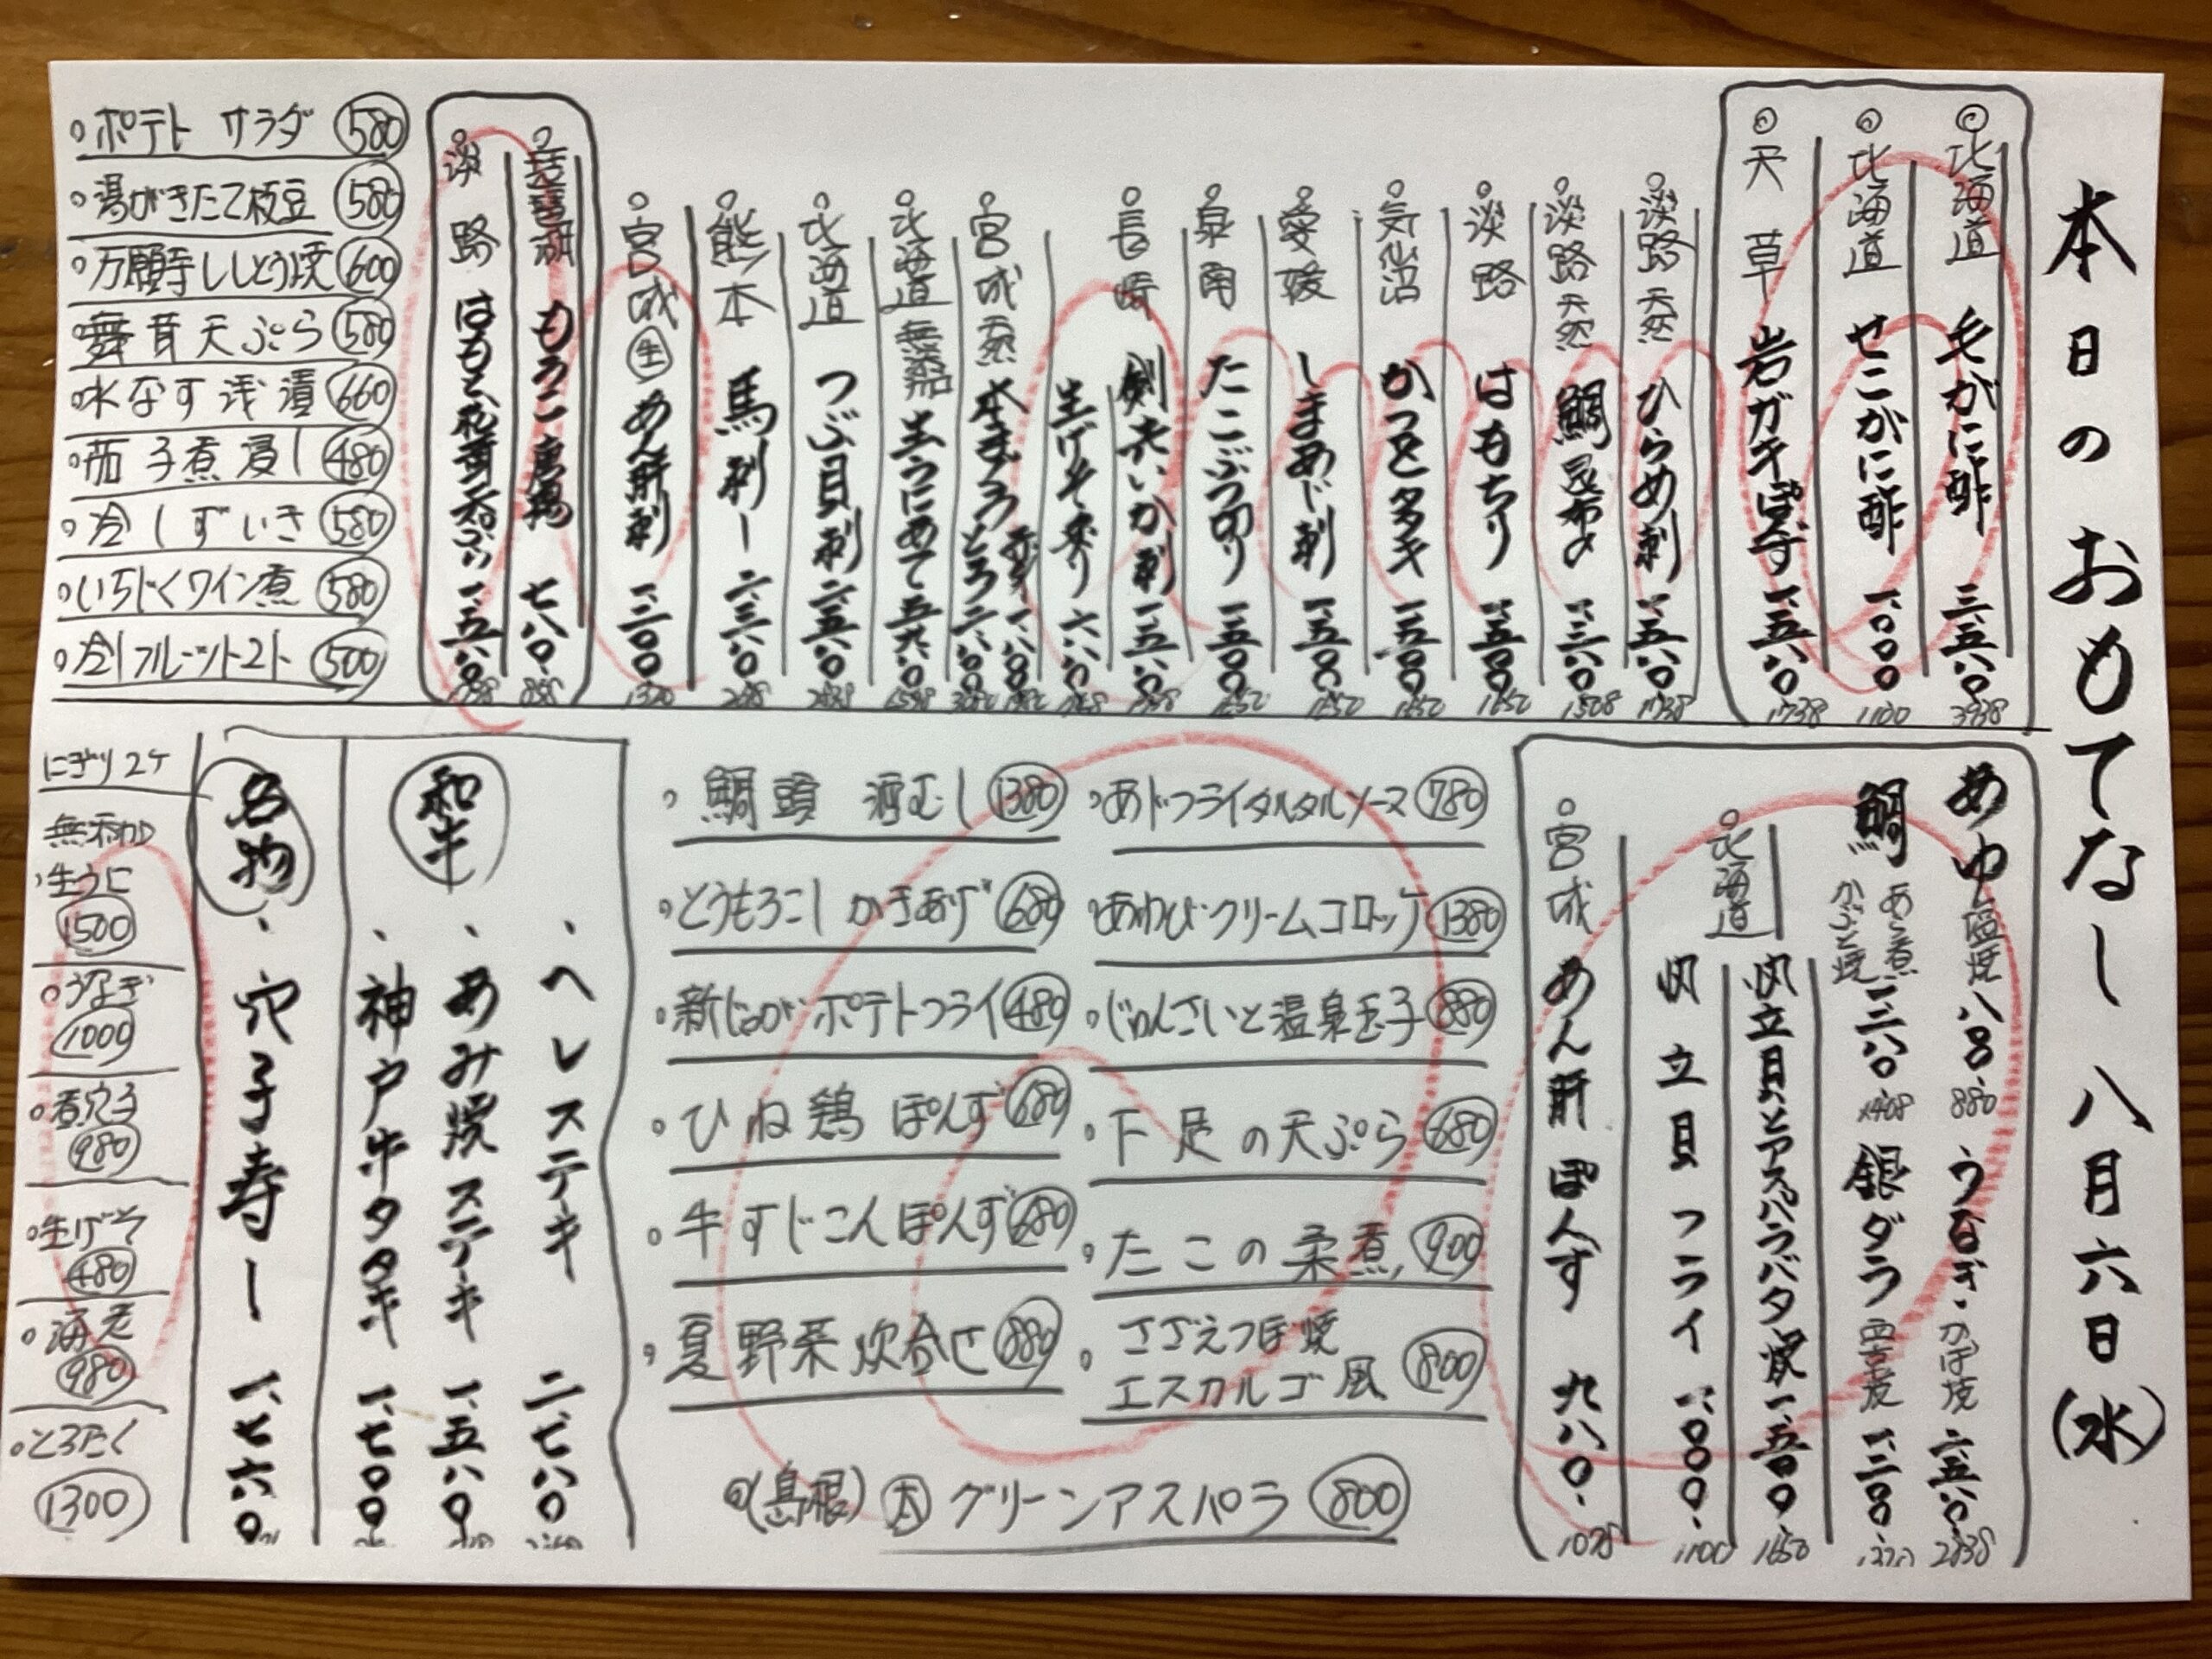 本日のおもてなし 八月六日(水)
◎北海道 毛がに酢 三、五八〇 3938
◎北海道 せこがに酢 一、〇〇〇 1100
◎天草 岩ガキぽんず 一、五八〇 1738
淡路 天然 ひらめ刺 一、五八〇 1738
淡路 天然 鯛昆布〆
淡路 はもちり 一、五〇〇 1650
気仙沼 かつおタタキ 一、五〇〇 1650
愛媛 しまあじ刺 一、五〇〇 1650
泉南 たこぶつ切り 一、五〇〇 1650
長崎 剣先いか刺 一、五八〇
生げそ造り 六八〇
宮城 天然 本まぐろ 赤身 一、八〇〇 とろ 二、八〇〇
北海道 無添加 生うに
北海道 つぶ貝刺 二、五八〇 2838
熊本 馬刺し
宮城 生 あん肝刺 一、二〇〇 1320
琵琶湖 もろこ 七八〇
淡路 はもと 天ぷら 一、五八〇
ポテトサラダ 580
湯がきたて枝豆 580
万願寺ししとう焼 600
舞茸天ぷら 580
水なす浅漬 660
茄子煮浸し 480
冷しずいき 580
いちじくワイン煮 580
冷しフルーツトマト 500
あゆ 塩焼 八〇〇 880 うなぎ・かば焼 二、五八〇 2838
鯛 あら煮 かぶと焼 一、二八〇 1408 銀ダラ 西京焼 一、二〇〇
北海道 帆立貝とアスパラバター焼 一、五〇〇 1650
帆立貝フライ 一、〇〇〇 1100
宮城 あん肝ぽんず 九八〇 1078
あじフライタルタルソース 780
あわびクリームコロッケ 1380
じゅんさいと温泉玉子 880
下足の天ぷら 680
たこの柔煮 900
さざえつぼ焼
エスカルゴ風 800
鯛頭 酒むし 1380
とうもろこし かきあげ 680
新じゃがポテトフライ 480
ひね鶏 ぽんず 680
牛すじこんぽんず 680
夏野菜炊合せ 880
(島根) 太 グリーンアスパラ 800
和牛
ヘレステーキ 二、七八〇
あみ焼ステーキ 一、五八〇
神戸牛タタキ 一、七〇〇
名物
穴子寿し 一、七六〇
にぎり2ケ
無添加
生うに
1500
うなぎ
1000
煮穴子
980
生げそ
480
海老
980
とろたく
1300